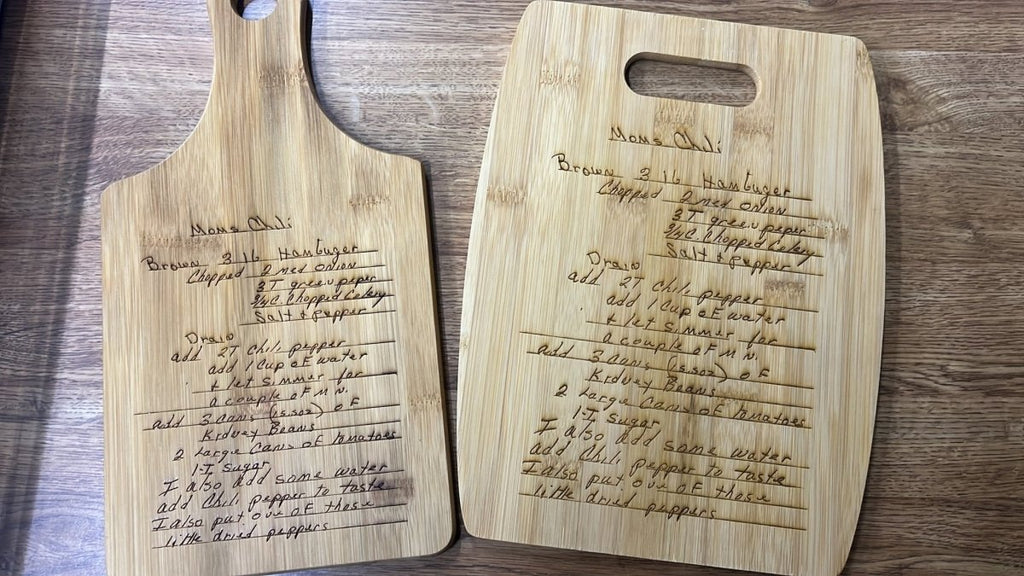 Moms Chili
Brown 3 lb Hambuger
Chopped 2 med onion
3 T green peper
3/4 C. Chopped Celery
Salt & pepper
Drain
add 2T Chili pepper
add 1 Cup of water
& let simmer for
a couple of MN.
add 3 cans (15 1/2 oz) of
Kidney Beans
2 Large Cans of Tomatoes
1-T Sugar
I also add some water
add Chili pepper to taste
I also put one of those
little dried peppers
Moms Chili
Brown 3 lb Hambuger
Chopped 2 med onion
3 T green peper
3/4 C. Chopped Celery
Salt & pepper
Drain
add 2T Chili pepper
add 1 Cup of water
& let simmer for
a couple of MN.
add 3 cans of
Kidney Beans
2 Large Cans of Tomatoes
1-T Sugar
I also add some water
add Chili pepper to taste
I also put one of those
little dried peppers